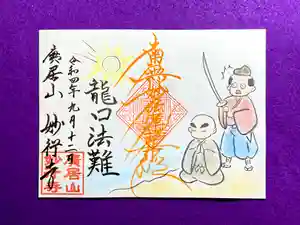 南無妙法蓮華経
龍口法難
令和四年九月十二日
廣居山
廣居山